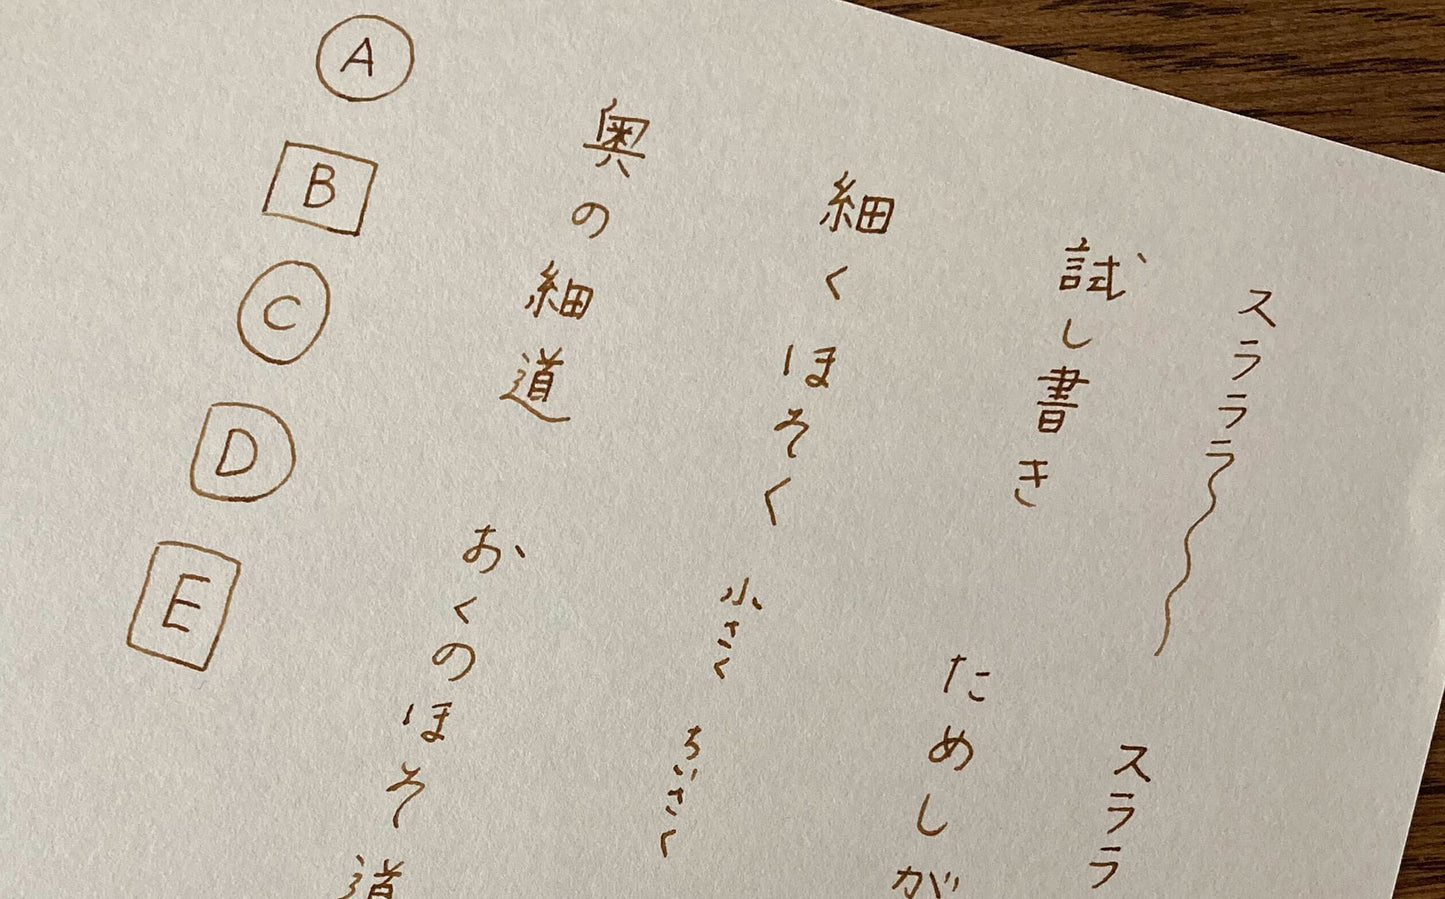 スラララ
スララ
試し書き
ためしが
細くほそく
小さく
ちいさく
奥の細道
おくのほそ道
A
B
C
D
E